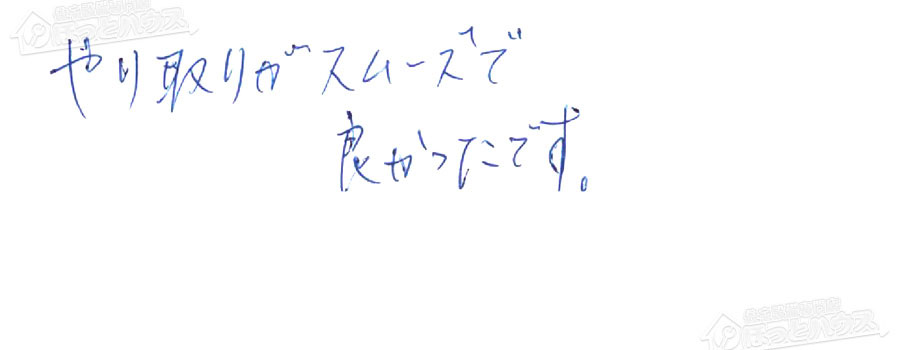 やり取りがスムーズで
良かったです。
ほっとハウス
ほっとハウス